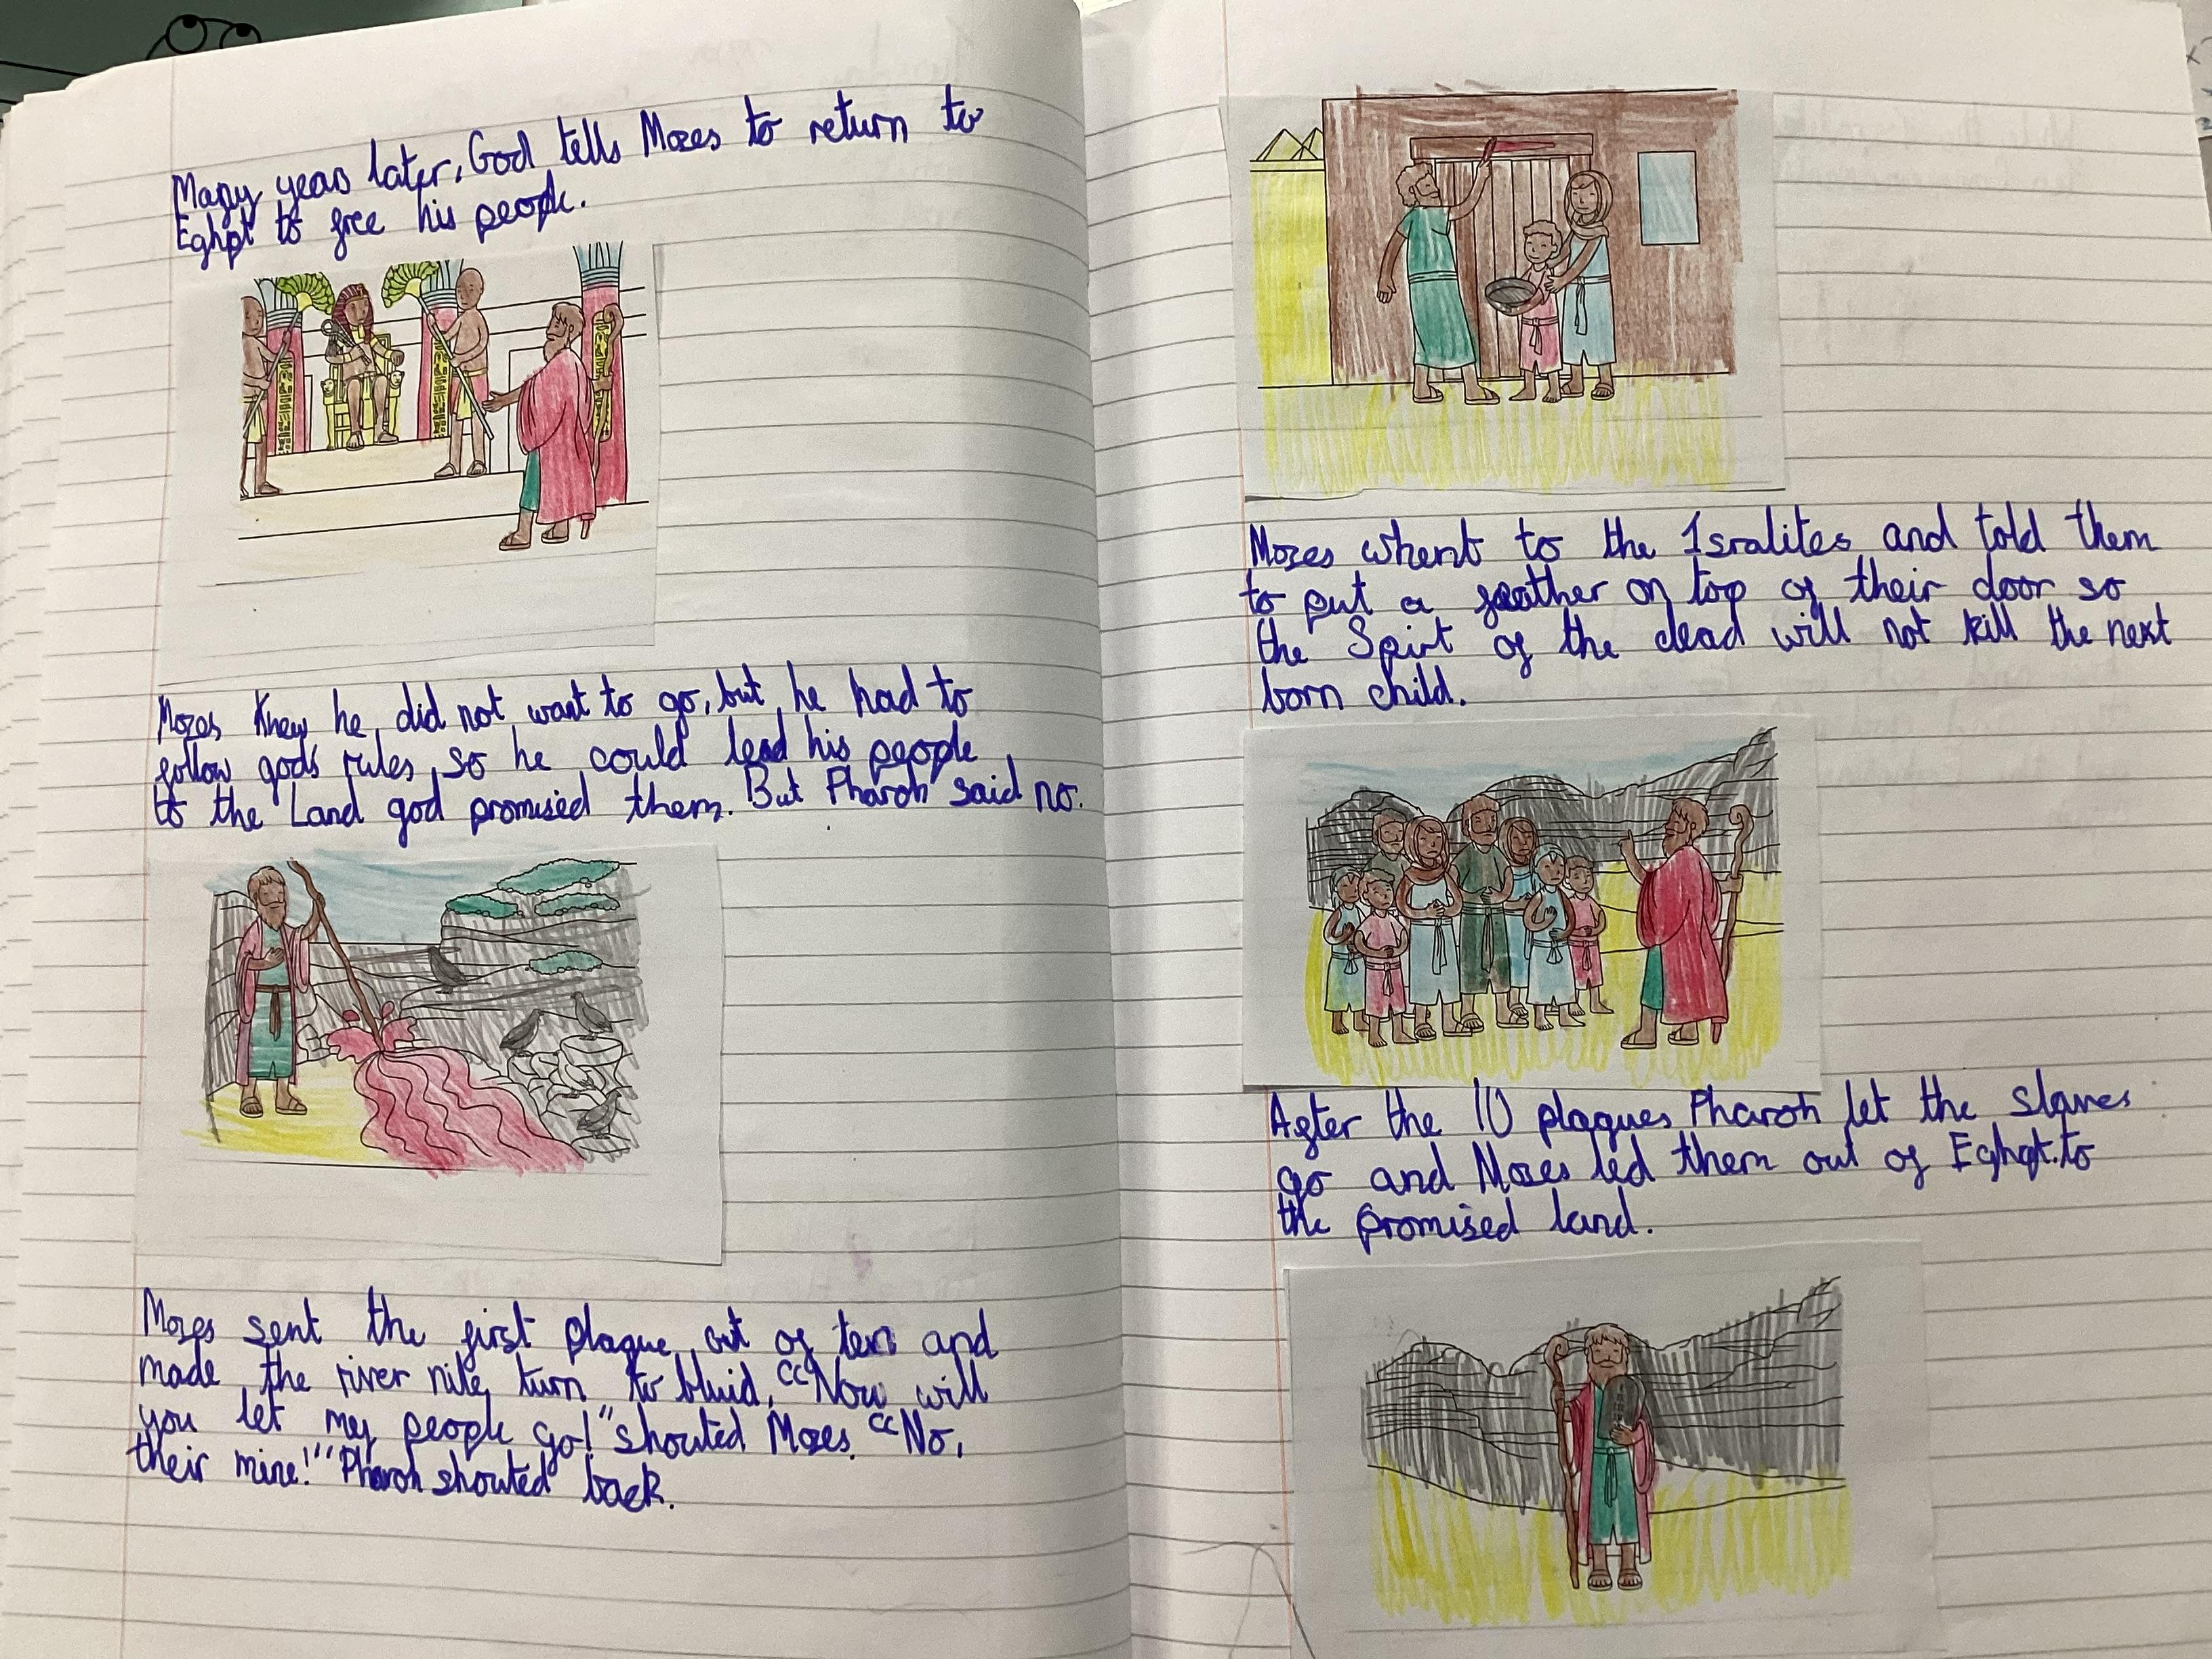 Many years later, God tells Mozes to return to
Eghpt to free his people.
Mozes knew he did not want to go, but he had to
follow gods' rules so he could lead his people
to the Land god promised them. But Pharoh said no.
Mozes sent the first plague out of ten and
made the river nile turn to bluid, "Now will
you let my people go!" shouted Mozes. "No,
their mine!" Pharoh shouted back.
Mozes whent to the Isralites and told them
to put a feather on top of their door so
the Spirt of the dead will not kill the next
born child.
After the 10 plagues Pharoh let the slaves
go and Mozes led them out of Eghpt. to
the promised land.